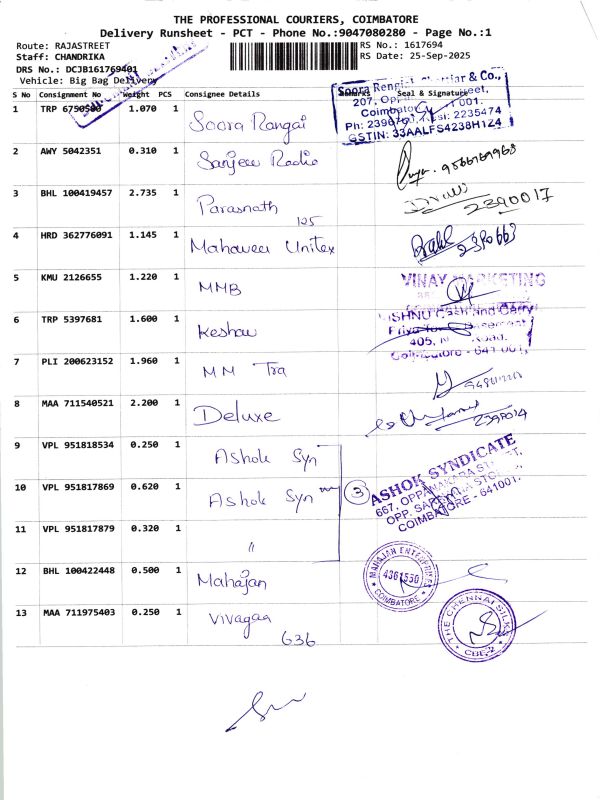 THE PROFESSIONAL COURIERS, COIMBATORE
Delivery Runsheet - PCT - Phone No.:9047080280 - Page No.:1
Route: RAJASTREET RS No.: 1617694
Staff: CHANDRIKA RS Date: 25-Sep-2025
DRS No.: DCJB161769401
Vehicle: Big Bag Delivery
S No Consignment No Weight PCS Consignee Details Remarks Seal & Signature
1 TRP 6750500 1.070 1 Soora Rangai
Soora & Co.,
207,
Coimbatore 001.
2235474
GSTIN: 33AALFS4238H1Z4
2 AWY 5042351 0.310 1 Sanjeev Radio
3 BHL 100419457 2.735 1 Parasnath 2390017
125
4 HRD 362776091 1.145 1 Mahaveer Unitex 2390663
5 KMU 2126655 1.220 1 MMB VINAY MARKETING
6 TRP 5397681 1.600 1 Keshav
VISHNU Cash and Carry
Priya Basement
405, Road,
Coimbatore - 641 001
7 PLI 200623152 1.960 1 MM Tra
8 MAA 711540521 2.200 1 Deluxe
9 VPL 951818534 0.250 1 Ashok Syn
10 VPL 951817869 0.620 1 Ashok Syn 3
ASHOK SYNDICATE
667, OPPANAKARA ST
OPP.
COIMBATORE - 641001.
11 VPL 951817879 0.320 1 "
12 BHL 100422448 0.500 1 Mahajan
MAHAJAN ENTERPRISES
4361550
COIMBATORE
13 MAA 711975403 0.250 1 Vivagaa
636
THE CHENNAI SILKS
CBE-2